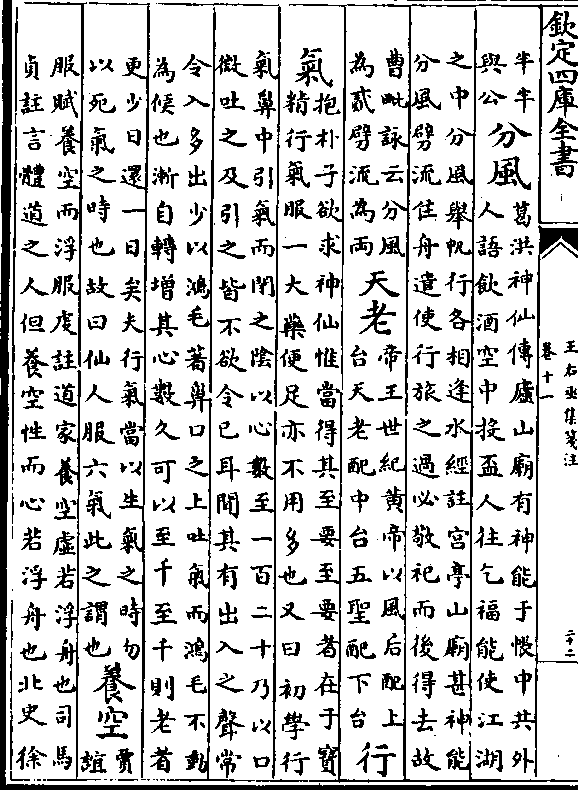 欽定四庫全書
王右丞集箋注
卷十一
二十二
牛牛
與公
分風
葛洪神仙傳廬山廟有神能于帳中共外
人語飲酒空中投盃人往乞福能使江湖
之中分風舉帆行各相逢水經註宮亭山廟甚神能
分風劈流住舟遣使行旅之過必敬祀而後得去故
曹毗詠云分風
為貳劈流為兩
天老
帝王世紀黄帝以風后配上
台天老配中台五聖配下台
行
氣
抱朴子欲求神仙惟當得其至要至要者在于寶
精行氣服一大藥便足亦不用多也又曰初學行
氣鼻中引氣而閉之陰以心數至一百二十乃以口
微吐之及引之皆不欲令已耳聞其有出入之聲常
令入多出少以鴻毛著鼻口之上吐氣而鴻毛不動
為候也漸自轉增其心數久可以至千至千則老者
更少日還一日矣夫行氣當以生氣之時勿
以死氣之時也故曰仙人服六氣此之謂也
養空
賈
誼
服賦養空而浮服虔註道家養空虛若浮舟也司馬
貞註言體道之人但養空性而心若浮舟也北史徐